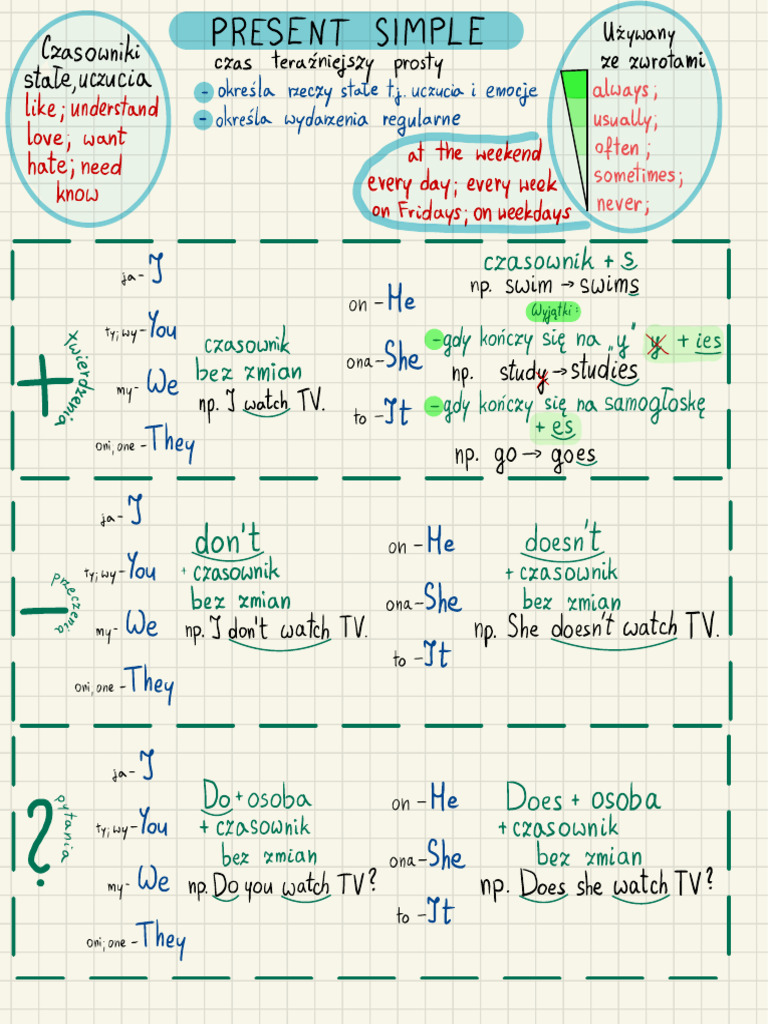 PRESENT SIMPLE
czas teraźniejszy prosty
- określa rzeczy stałe tj. uczucia i emocje
- określa wydarzenia regularne
Czasowniki
stałe, uczucia
like; understand
love; want
hate; need
know
at the weekend
every day; every week
on Fridays; on weekdays
Używany
ze zwrotami
always;
usually;
often;
sometimes;
never;
+ twierdzenia
ja - I
ty; wy - You
my - We
oni, one - They
czasownik
bez zmian
np. I watch TV.
on - He
ona - She
to - It
czasownik + s
np. swim → swims
Wyjątki:
- gdy kończy się na „y” y + ies
np. study → studies
- gdy kończy się na samogłoskę
+ es
np. go → goes
- przeczenia
ja - I
ty; wy - You
my - We
oni, one - They
don't
+ czasownik
bez zmian
np. I don't watch TV.
on - He
ona - She
to - It
doesn't
+ czasownik
bez zmian
np. She doesn't watch TV.
? pytania
ja - I
ty; wy - You
my - We
oni, one - They
Do + osoba
+ czasownik
bez zmian
np. Do you watch TV?
on - He
ona - She
to - It
Does + osoba
+ czasownik
bez zmian
np. Does she watch TV?